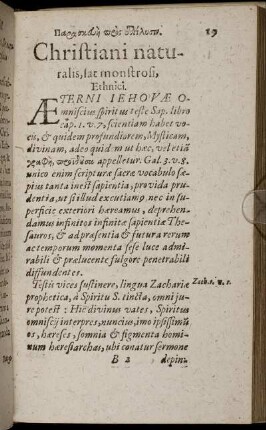 Παρασκευὴ πρὸς
19
Christiani natu-
ralis, sat monstrosi,
Ethnici.
ÆTERNI IEHOVÆ O-
mniscius spiritus teste Sap. libro
cap. 1. v. 7, scientiam habet vo-
cis, & quidem profundiorem, Mysticam,
divinam, adeo quidem ut hæc, vel etiã
appelletur. Gal. 3. v. 8.
unico enim scripturæ sacræ vocabulo sæ-
pius tanta inest sapientia, provida pru-
dentia, ut si illud excutiamp nec in su-
perficie exteriori hæreamus, deprehen-
damus infinitos infinitæ sapientiæ The-
sauros, & ad præsentia & futura rerum
ac temporum momenta sese luce admi-
rabili & prælucente fulgore penetrabili
diffundentes.
Testis vices sustinere, lingua Zachariæ
Zach. 1. v. 1.
prophetica, à Spiritu S. tincta, omni ju-
re potest: Hic divinus vates, Spiritus
omniscij interpres, nuncius, imo ipsissimũ
os, hæreses, somnia & figmenta homi-
num hæresiarchas, ubi conatur sermone
B 2
depin-